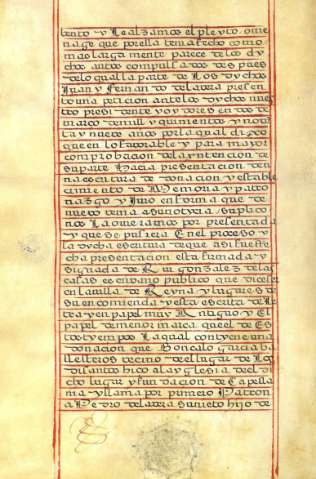 bento y Le alzamos el pleyto ome
nage que por ella tema fecho como
mas larga mente parece de los dy
chos autos compulsados des pues
de lo qual la parte de Los dychos
Juan y Fernando de lavera presen
to una peticion ante los dychos nues
tro presidente y oydores en dos de
março de mill y quinientos y nove
ta y nueve años por la qual dijo
que en lo favorable y para mayor
comprobacion de la yntencion de
su parte Hacia presentacion de
na escritura de donacion y estable
cimiento de Memoria y patro
nazgo y Juro en forma que de
nuevo tema a su notycia suplico
nos La ovieramos por presentada
y que se pusiera En el proceso y
la dycha escritura de que asi fue fe
cha presentacion esta firmada y
signada de Ruy gonzalez de las
casas escrivano publico que dice ser
en la villa de Reyna y lugares de
su encomienda y esta escrita de le
tra y en papel muy Antiguo y El
papel de menor marca que el de Es
tos tyempos La qual contyene una
donacion que Goncalo garcia ba
llesteros becino del lugar de Los
di santos hico a la yglesia del di
cho lugar y fundacion de Capella
nia y llama por primero Patron
a Pedro de lavera su nieto hijo de